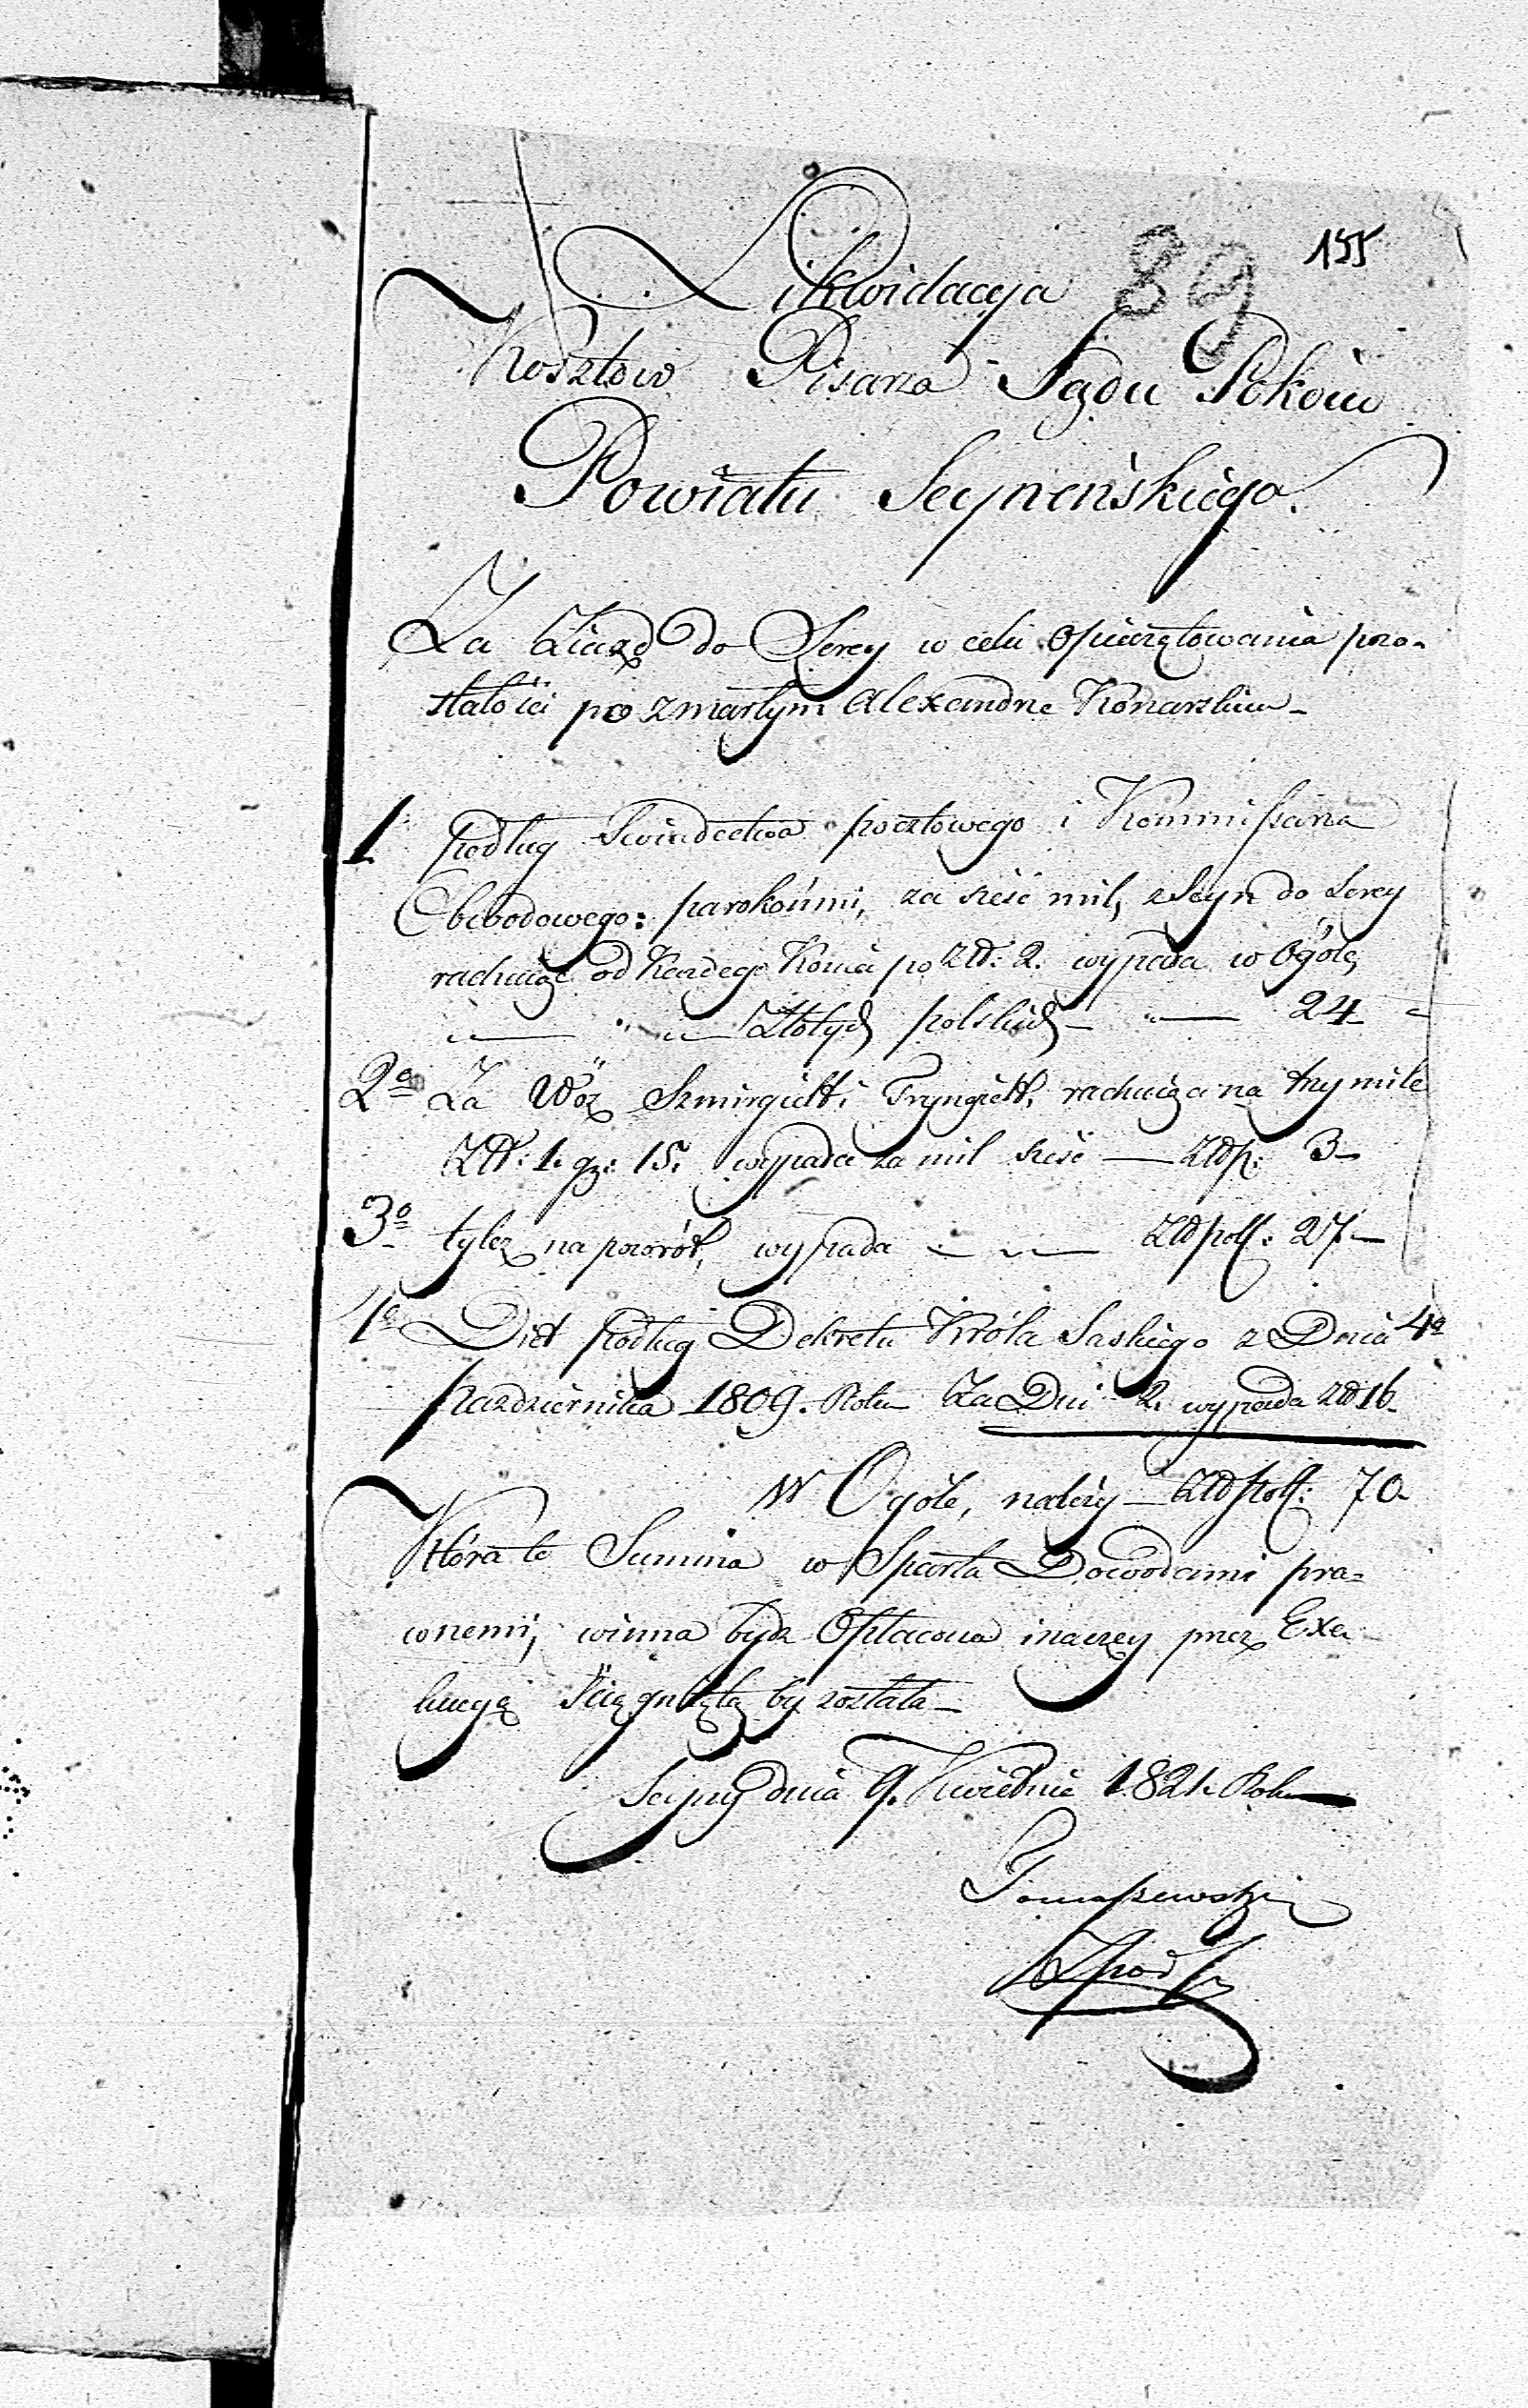 155
89
Likwidacyia
Kosztow Pisarza Sądu Pokoiu
Powiatu Seynenskiego.
Za Ziazd do Serey w celu Opieczętowania pozo-
stałości po zmarłym Alexandrze Konarskim -
1 Podług Swiadectwa pocztowego i Kommissarza
Obwodowego: parokońmi, za sześć mil, z Seyn do Serey
rachuiąc od Każdego Konia po złł: 2. wypada w Ogóle,
Złotych polskich - 24 -
2o Za Wóz Szmirgiełt i Tryngiełt, rachuiąc na trzy mile
Złł: 1. gr: 15. wypada za mil sześć — złłp: 3 -
3o tyleż na powrót, wypada — Złł pols: 27 -
4o Diet podług Dekretu Króla Saskiego z Dnia 4o
Pazdziernika 1809. Roku Za Dni 2. wypada złł 16.
W Ogóle, należy — Złł Pols: 70
Która to Summa w Sparta Dowodami pra-
wnemi, winna bydź Opłacona inaczey przez Exe-
kucyią Sciągniętą by została -
Seyny dnia 9. Kwietnia 1821. Roku
Tomaszewski